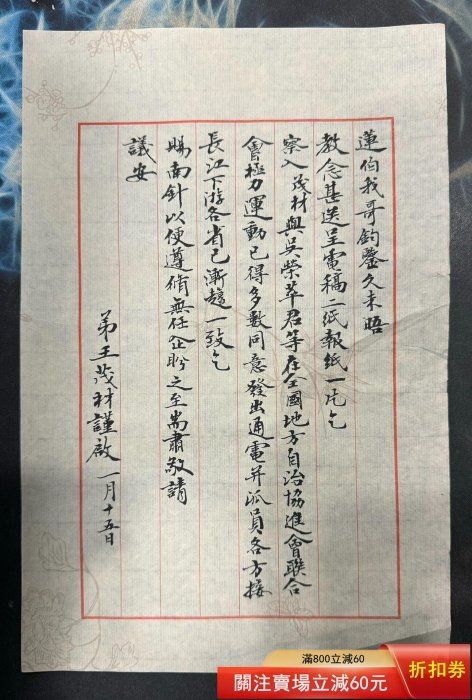 蓮伯我哥鈞鑒久未晤
教念甚送呈電稿二紙報紙一瓜乞
察入茂材與吳榮萃君等在全國地方自治協進會聯合
會極力運動已得多數同意發出通電并派員各方接
長江下游各省已漸趨一致乞
賜南針以便遵循無任企盼之至耑肅敬請
議安
弟王茂材謹啟一月十五日
滿800立減60
關注賣場立減60元
折扣券